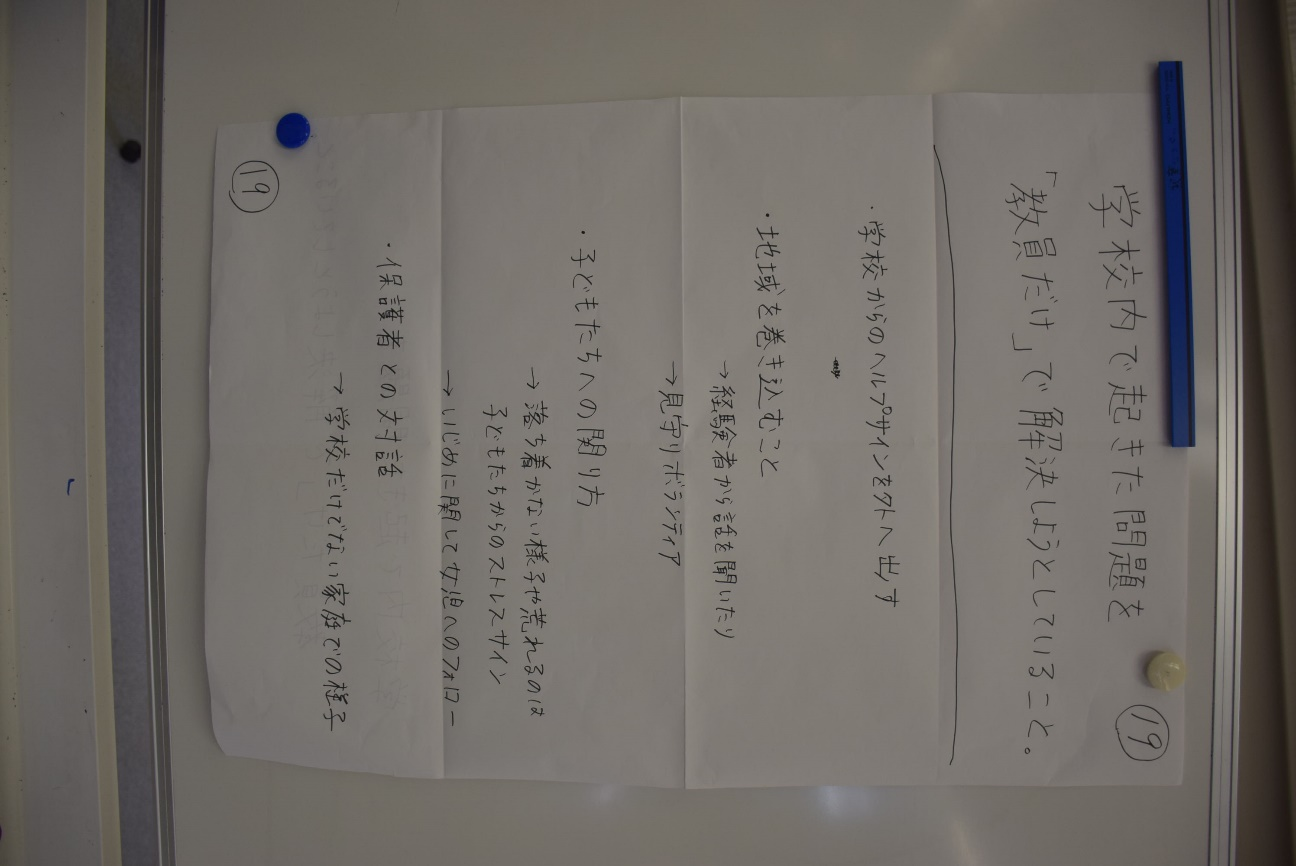 ⑲
学校内で起きた問題を
「教員だけ」で解決しようとしていること。
・学校からのヘルプサインを外へ出す
・地域を巻き込むこと
→経験者から話を聞いたり
→見守りボランティア
・子どもたちへの関り方
→落ち着かない様子や荒れるのは
子どもたちからのストレスサイン
→いじめに関して女児へのフォロー
・保護者との対話
→学校だけでない家庭での様子
⑲